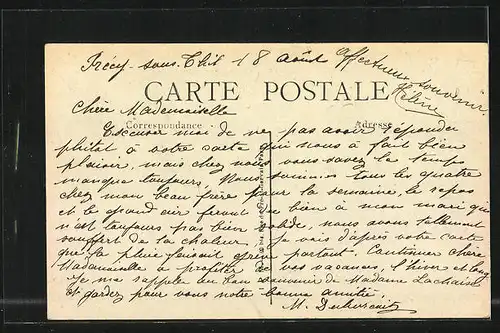 Précy-sous-Thil 18 Août
Affectueux souvenir
Hélène
CARTE POSTALE
Chère Mademoiselle
Correspondance
Adresse
Excuser moi de ne pas avoir répondu
plutôt à votre carte qui nous a fait bien
plaisir, mais chez nous vous savez le temps
manque toujours, Nous sommes tous les quatre
chez mon beau frère pour la semaine, le repos
et le grand air feront du bien à mon mari qui
n'est toujours pas bien solide, nous avons tellement
souffert de la chaleur. Je vois d'après votre carte
que la pluie faisait partout. Continuer chère
Mademoiselle à profiter de vos vacances, l'hiver et long
Je me rappelle au bon souvenir de Madame Lachaise
et gardez pour vous notre bonne amitié,
M.